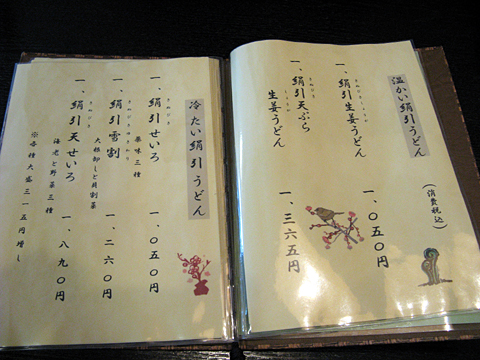 温かい絹引うどん
(消費税込)
一、絹引生姜うどん 一、〇五〇円
一、絹引天ぷら
生姜うどん 一、三六五円
冷たい絹引うどん
一、絹引せいろ 一、〇五〇円
薬味三種
一、絹引雪割 一、二六〇円
大根卸しと貝割菜
一、絹引天せいろ 一、八九〇円
海老と野菜三種
※各種大盛三一五円増し